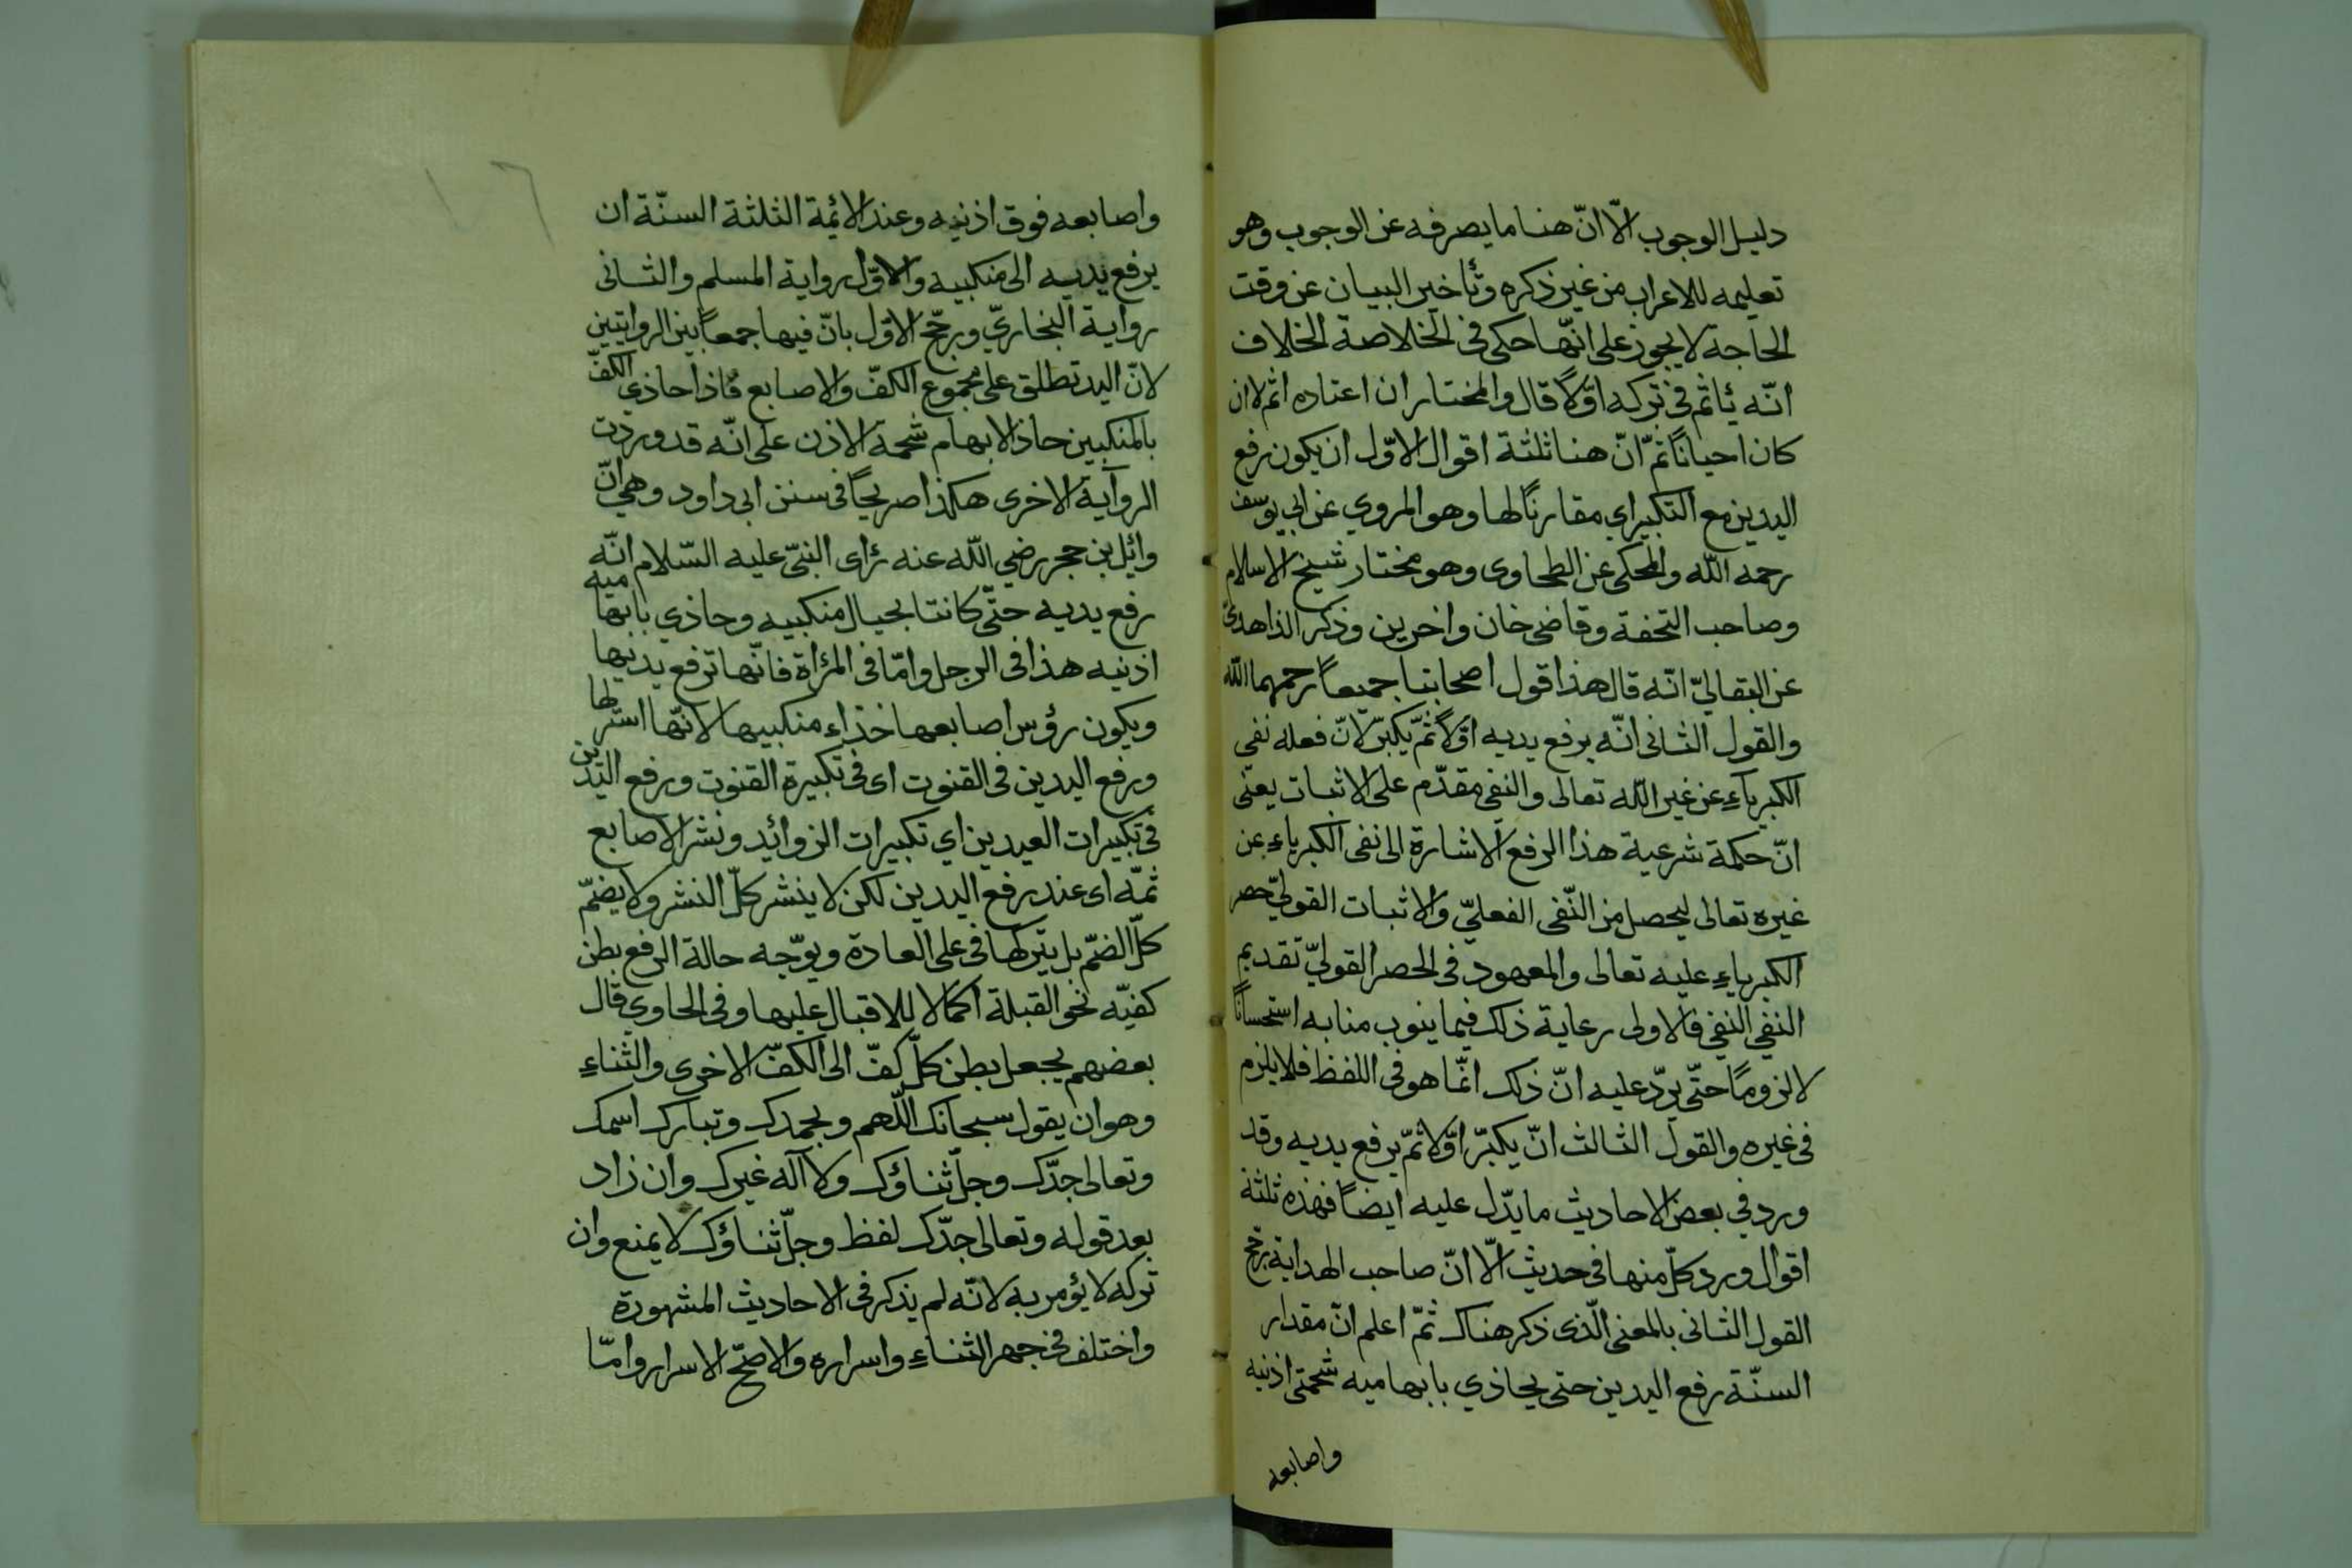 دليل الوجوب الّا انّ هنا ما يصرفه عن الوجوب وهو
تعليمه للاعراب من غير ذكره وتأخير البيان عن وقت
الحاجة لا يجوز على انّها حكى في الخلاصة الخلاف
انّه يأثم في تركه اوّلاً قال والمختار ان اعتاده اثم لا ان
كان احياناً ثمّ انّ هنا ثلثة اقوال الاوّل ان يكون رفع
اليدين مع التكبير اي مقارناً لها وهو المروي عن ابي يوسف
رحمه الله والمحكى عن الطحاوى وهو مختار شيخ الاسلام
وصاحب التحفة وقاضى خان واخرين وذكر الذاهدىّ
عن البقاليّ انّه قال هذا قول اصحابنا جميعاً رحمهما الله
والقول الثانى انّه يرفع يديه اوّلاً ثمّ يكبّر لانّ فعله نفي
الكبرياءِ عن غير الله تعالى والنفى مقدّم على الاثبات يعنى
انّ حكمة شرعية هذا الرفع الاشارة الى نفى الكبرياءِ عن
غيره تعالى ليحصل من النّفى الفعليّ والاثبات القوليّ حصر
الكبرياءِ عليه تعالى والمعهود فى الحصر القوليّ تقديم
النفي النفي فالاولى رعاية ذلك فيما ينوب منابه استحساناً
لا لزوماً حتّى يردّ عليه انّ ذلك انّما هو فى اللفظ فلا يلزم
فى غيره والقول الثالث انّ يكبّر اوّلا ثمّ يرفع يديه وقد
ورد في بعض الاحاديث ما يدّل عليه ايضاً فهذه ثلثة
اقوال ورد كلّ منها فى حديث الّا انّ صاحب الهداية رجّح
القول الثانى بالمعنى الّذى ذكر هناك ثمّ اعلم انّ مقدار
السنّة رفع اليدين حتى يحاذي بابهاميه شحمتى اذنيه
واصابعه
واصابعه فوق اذنيه وعند الائمة الثلثة السنّة ان
يرفع يديه الى منكبيه والاوّل رواية المسلم والثانى
رواية البخاريّ ورجّح الاوّل بانّ فيها جمعاً بين الروايتين
لانّ اليد تطلق على مجموع الكفّ والاصابع فاذا حاذى الكفّ
بالمنكبين حاذ الابهام شحمة الاذن على انّه قد وردت
الرواية الاخرى هكذا صريحاً فى سنن ابى داود وهي انّ
وائل بن حجر رضي الله عنه رأى النبيّ عليه السّلام انّه
رفع يديه حتّى كانتا بحيال منكبيه وحاذي بابهاميه
اذنيه هذا فى الرجل وامّا فى المرأة فانّها ترفع يديها
ويكون رؤس اصابعها حذاء منكبيها لانّها استر لها
ورفع اليدين فى القنوت اى فى تكبيرة القنوت ورفع اليدين
فى تكبيرات العيدين اي تكبيرات الزوائد ونشر الاصابع
ثمّه اى عند رفع اليدين لكن لا ينشر كلّ النشر ولا يضمّ
كلّ الضمّ بل يتركها فى على العادة ويوّجه حالة الرفع بطن
كفيّه نحو القبلة اكمالا للاقبال عليها وفى الحاوي قال
بعضهم يجعل بطن كلّ كفّ الى الكفّ الاخرى والثناءِ
وهو ان يقول سبحانك اللّهم وبحمدك وتبارك اسمك
وتعالى جدّك وجلّ ثناؤك ولا آله غيرك وان زاد
بعد قوله وتعالى جدّك لفظ وجلّ ثناؤك لا يمنع وان
تركه لا يؤمر به لانّه لم يذكر فى الاحاديث المشهورة
واختلف فى جهر الثناءِ واسراره والاصحّ الاسرار وامّا